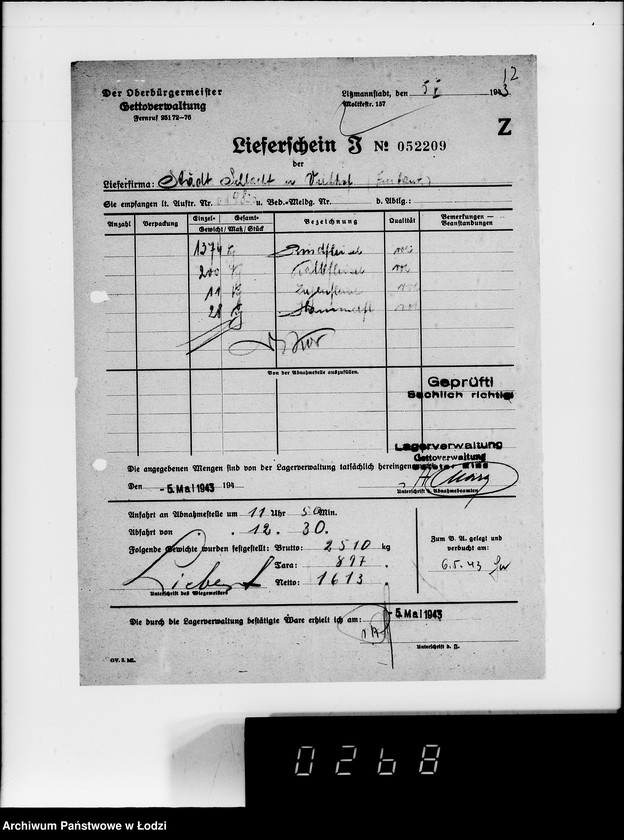 12
Der Oberbürgermeister
Gettoverwaltung
Fernruf 25172-76
Litzmannstadt, den 5/5 1943
Moltkestr. 157
Z
Lieferschein J № 052209
der
Lieferfirma: Städt Schlacht u Viehhof
Sie empfangen lt. Auftr. Nr. u. Bed.-Meldg. Nr. b. Abtlg.:
Anzahl Verpackung Einzel- Gesamt- Gewicht/Maß/Stück Bezeichnung Qualität Bemerkungen – Beanstandungen
1374 Kg Rindfleisch
200 Kg Kalbfleisch
11 Kg Ziegenfleisch
28 Kg
Von der Abnahmestelle auszufüllen.
Geprüft!
Sachlich richtig
Lagerverwaltung
Gettoverwaltung
Die angegebenen Mengen sind von der Lagerverwaltung tatsächlich hereingenommen
Den - 5. Mai 1943 194
Unterschrift d. Abnahmebeamten
Anfahrt an Abnahmestelle um 11 Uhr 50 Min.
Abfahrt von . 12 . 30 .
Folgende Gewichte wurden festgestellt: Brutto: 2510 kg
Tara: 897 .
Netto: 1613 .
Unterschrift des Wiegemeisters
Zum B. A. gelegt und
verbucht am:
6.5.43
Die durch die Lagerverwaltung bestätigte Ware erhielt ich am: - 5. Mai 1943
Unterschrift d. J.
GV. J. Ml.
0268
Archiwum Państwowe w Łodzi